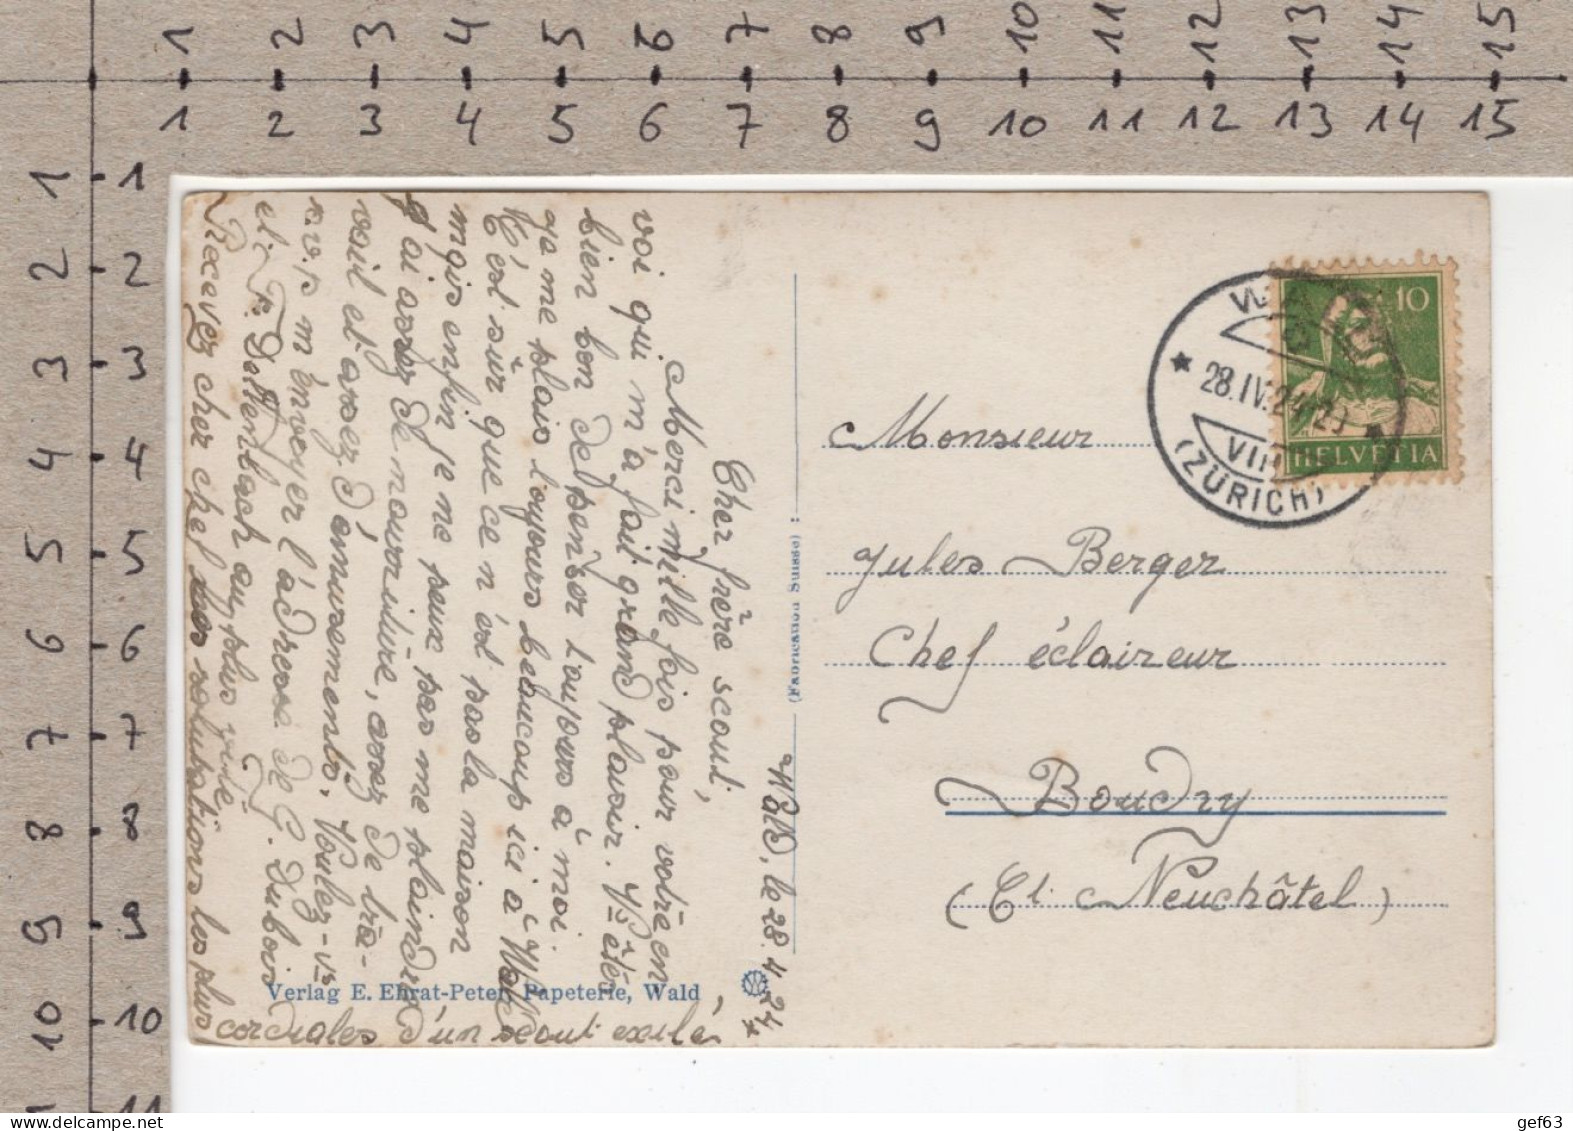 1 2 3 4 5 6 7 8 9 10 11 12 13 14 15
1 2 3 4 5 6 7 8 9 10 11 12 13 14 15
1 1
2 2
3 3
4 4
5 5
6 6
7 7
8 8
9 9
10 10
11
Wald, le 28.4.24
Cher frère scout,
Merci mille fois pour votre en
voi qui m'a fait grand plaisir. Vs êtes
bien bon de penser toujours à moi.
Ça me plais toujours beaucoup ici à Wald
C'est sûr que ce n'est pas la maison
mais enfin je ne peux pas me plaindre
J'ai assez de nourriture, assez de tra-
vail et assez d'amusements. Voulez-vs
s.v.p m'envoyer l'adresse de G. Dubois
et F. Dellenbach au plus vite,
Recevez cher chef les salutations les plus
cordiales d'un scout exilé
Verlag E. Ehrat-Peter, Papeterie, Wald
(Fabrication Suisse)
WALD
28.IV.24
VIII
(ZÜRICH)
10
HELVETIA
Monsieur
Jules Berger
Chef éclaireur
Boudry
(Ct. Neuchâtel)
gef63